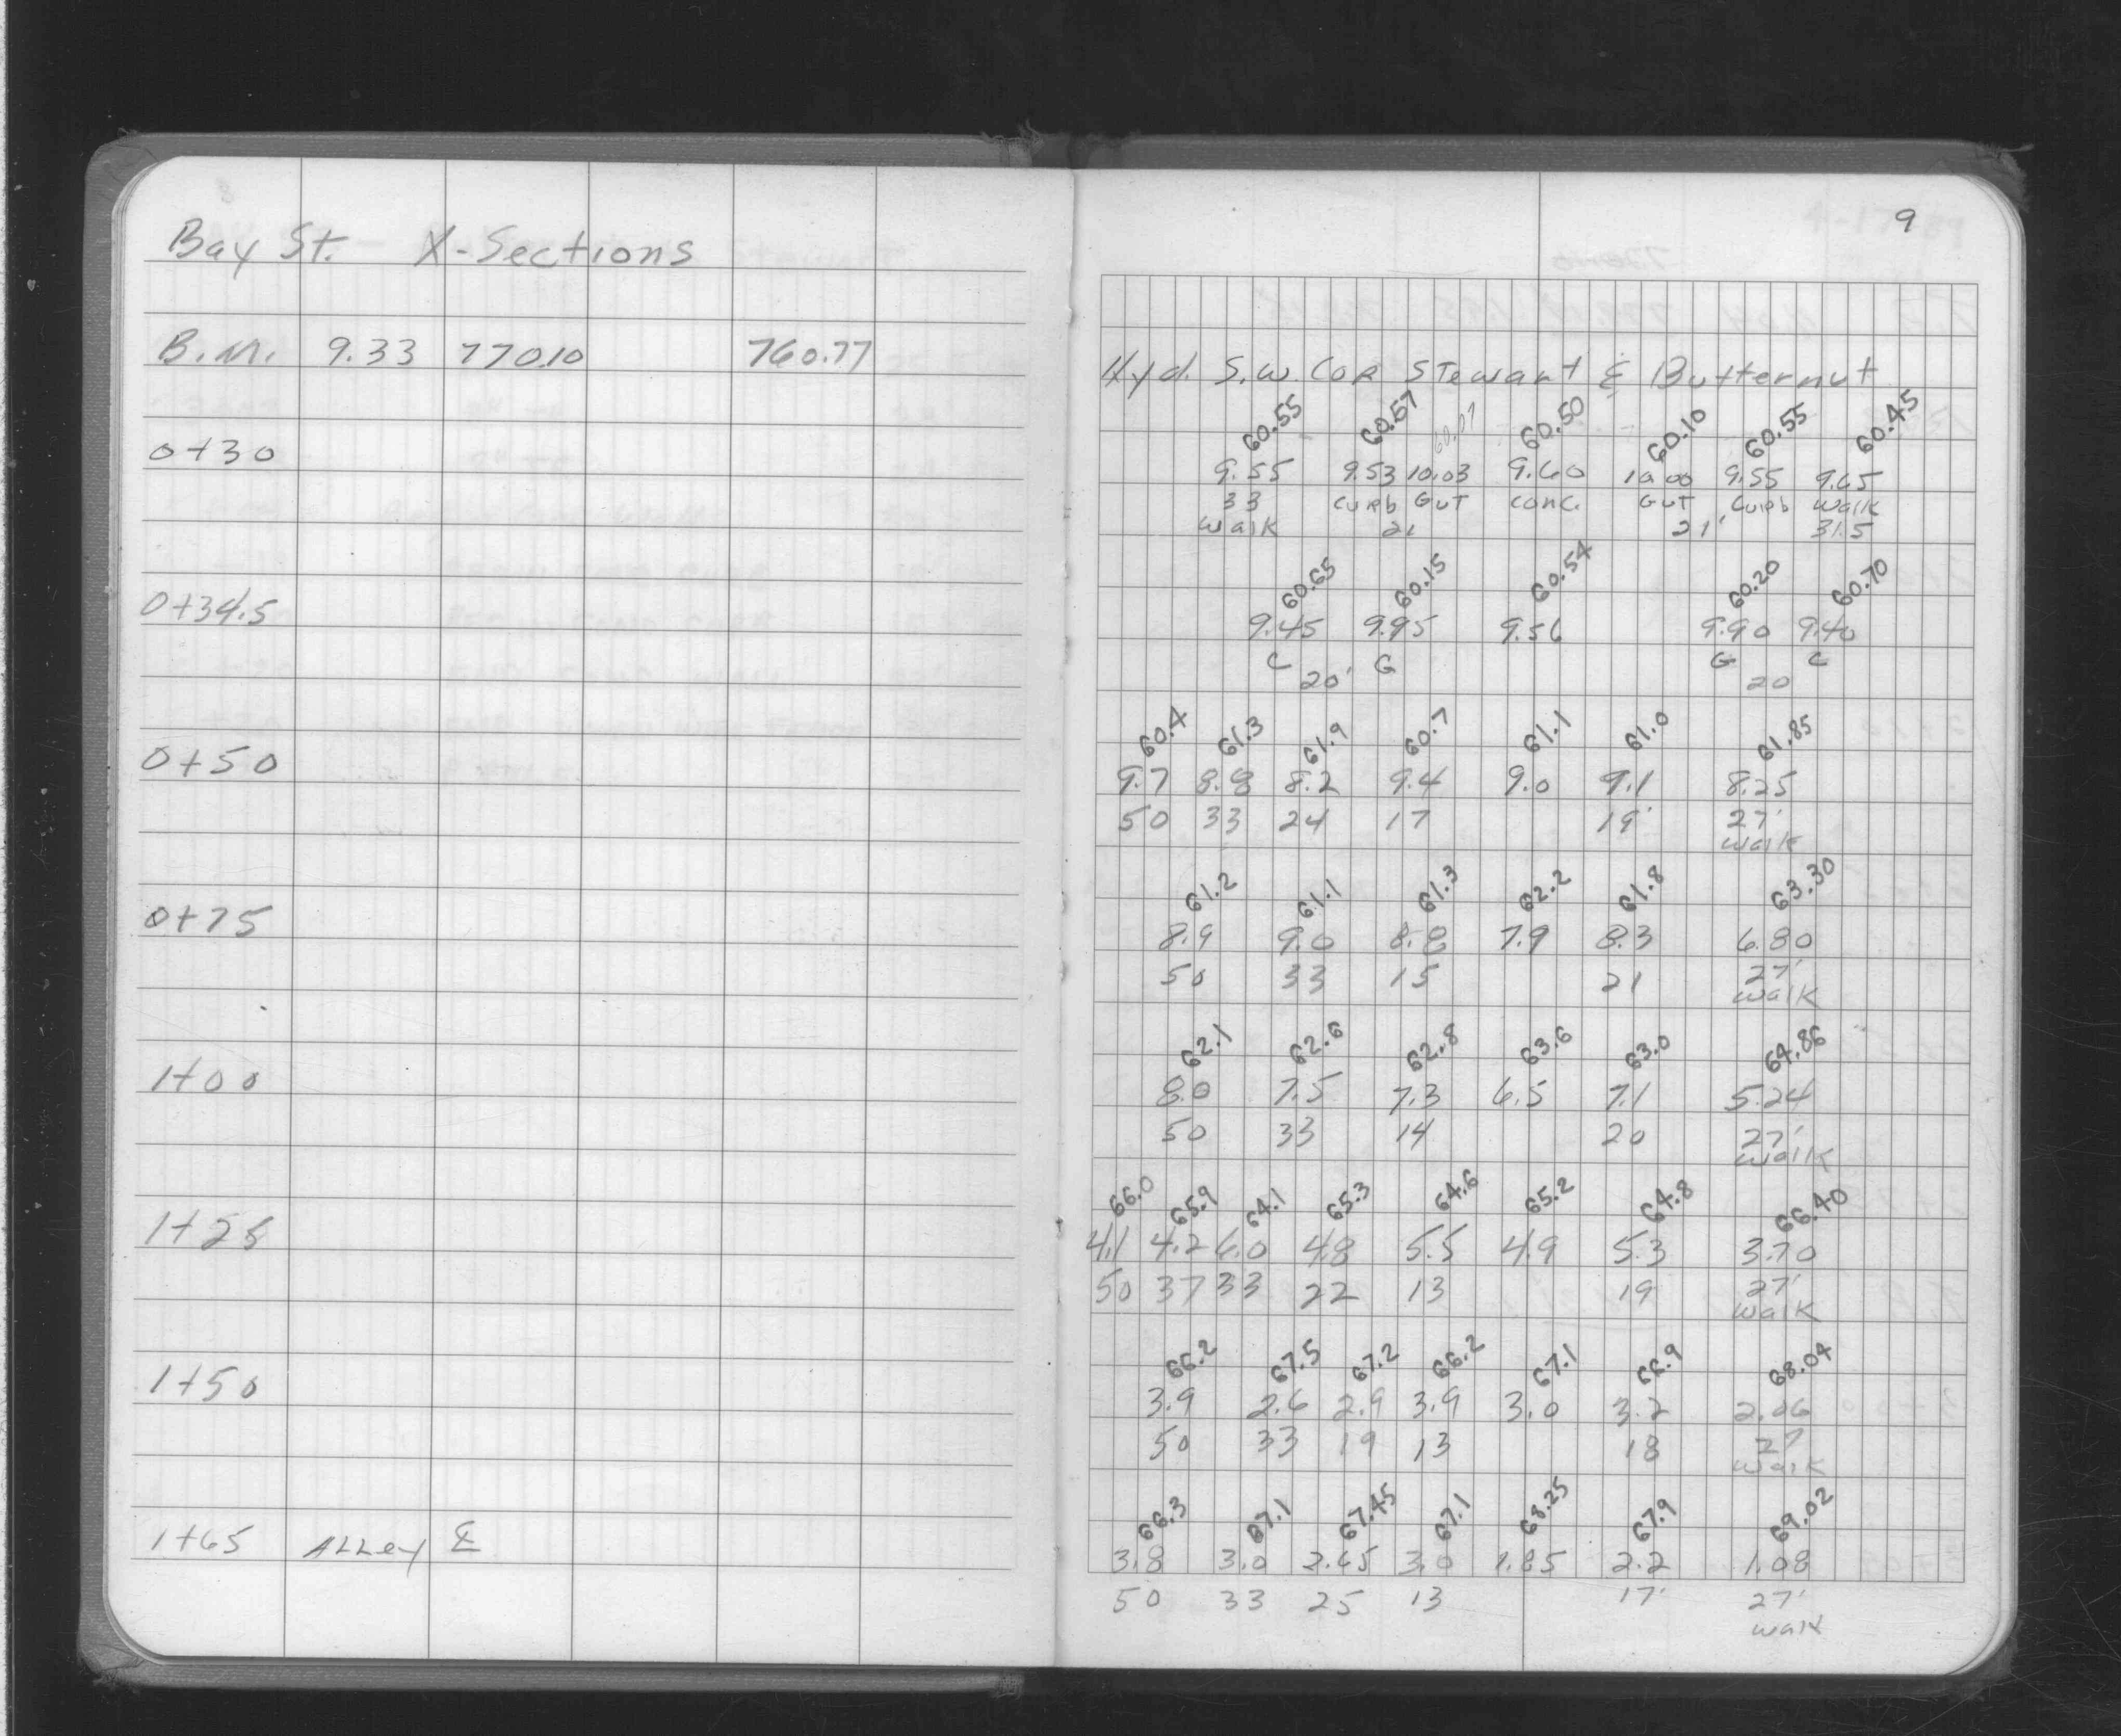 9
Bay St. X-Sections
B.M. 9.33 770.10 760.77 Hyd. S.W. Cor Stewart & Butternut
60.55 60.57 60.07 60.50 60.10 60.55 60.45
0+30 9.55 9.53 10.03 9.60 10.00 9.55 9.65
33 Curb Gut Conc. Gut Curb Walk
Walk 21 21' 31.5
60.65 60.15 60.54 60.20 60.70
0+34.5 9.45 9.95 9.56 9.90 9.40
C G G C
20' 20
60.4 61.3 61.9 60.7 61.1 61.0 61.85
0+50 9.7 8.8 8.2 9.4 9.0 9.1 8.25
50 33 24 17 19' 27'
Walk
61.2 61.1 61.3 62.2 61.8 63.30
0+75 8.9 9.0 8.8 7.9 8.3 6.80
50 33 15 21 27'
Walk
62.1 62.6 62.8 63.6 63.0 64.86
1+00 8.0 7.5 7.3 6.5 7.1 5.24
50 33 14 20 27'
Walk
66.0 65.9 64.1 65.3 64.6 65.2 64.8 66.40
1+25 4.1 4.2 6.0 4.8 5.5 4.9 5.3 3.70
50 37 33 22 13 19 27'
Walk
66.2 67.5 67.2 66.2 67.1 66.9 68.04
1+50 3.9 2.6 2.9 3.9 3.0 3.2 2.06
50 33 19 13 18 27
Walk
66.3 67.1 67.45 67.1 68.25 67.9 69.02
1+65 Alley ℄ 3.8 3.0 2.65 3.0 1.85 2.2 1.08
50 33 25 13 17' 27'
Walk